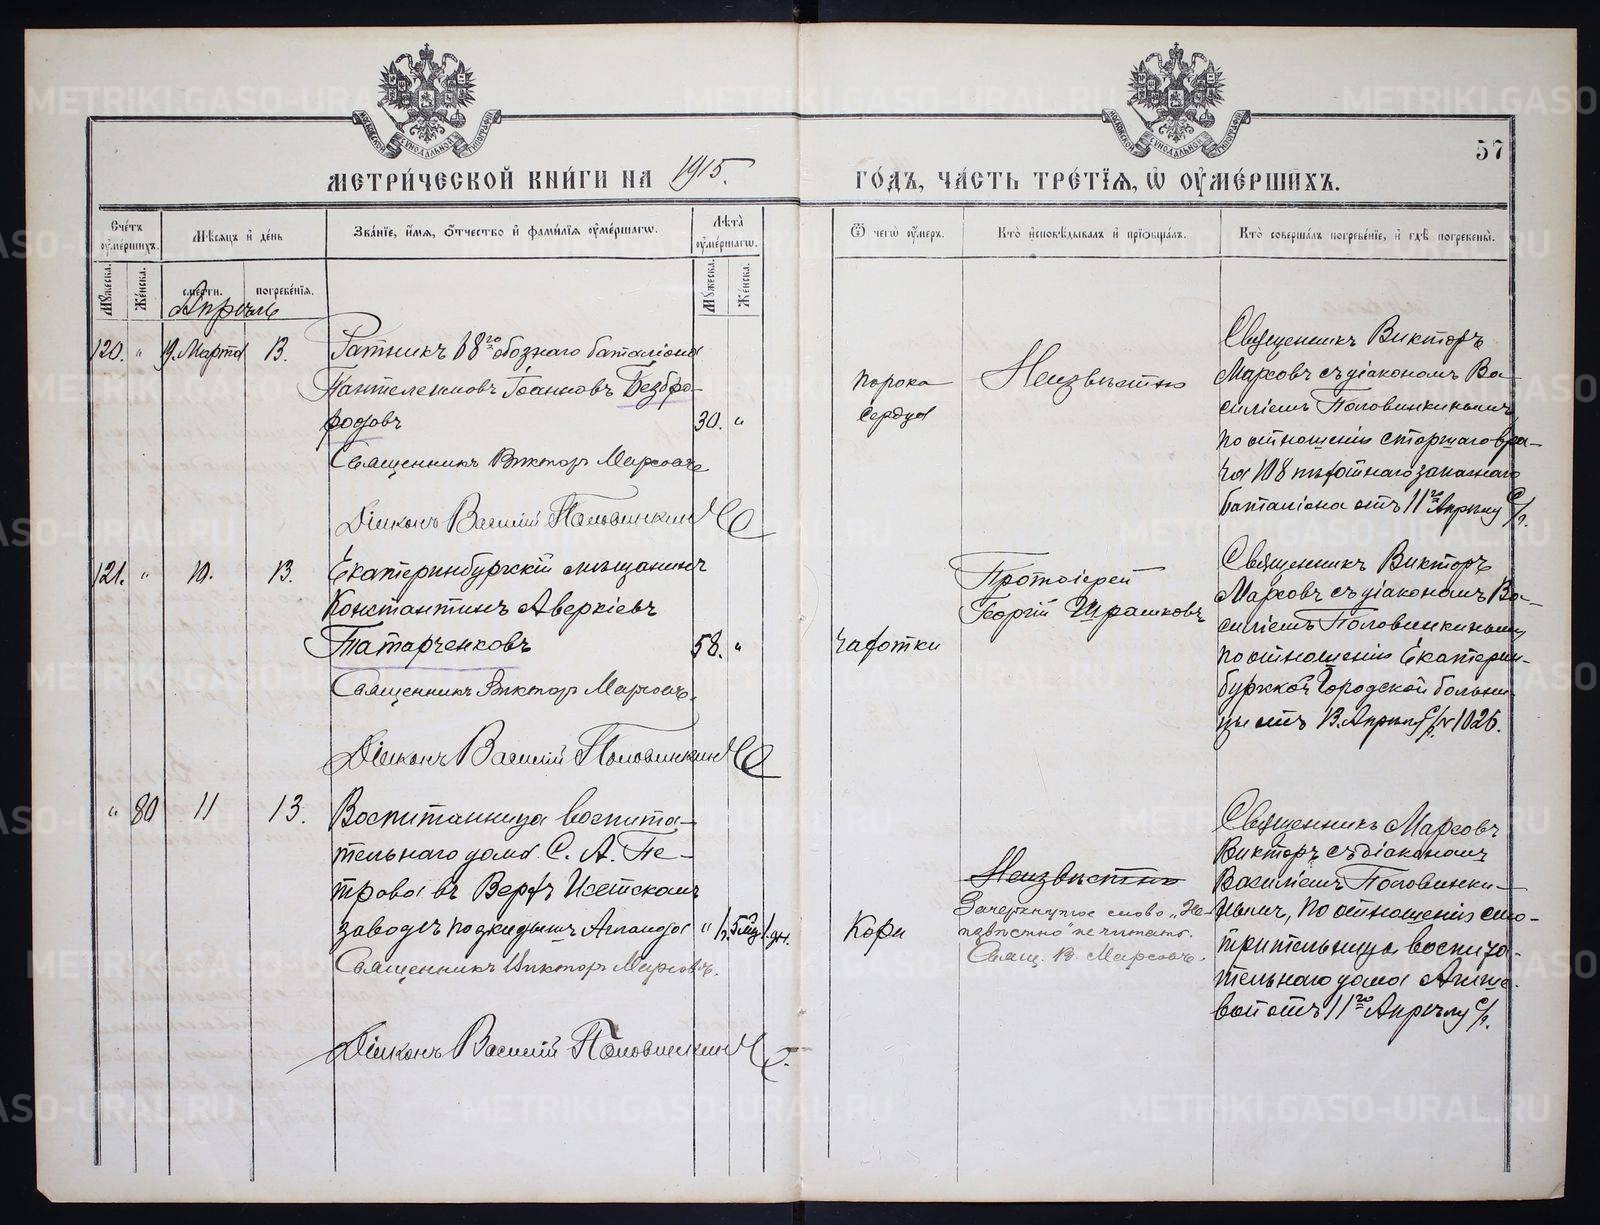 57
МЕТРИ́ЧЕСКОЙ КНИ́ГИ НА 1915.
ГО́ДЪ, ЧА́СТЬ ТРЕ́ТЇѦ, Ѡ҆ ОУ҆МЕ́РШИХЪ.
Сче́тъ оу҆ме́ршихъ.
Мѣ́сяцъ и҆ де́нь
Зва́нїе, и҆́мѧ, ѻ҆́тчество и҆ фами́лїѧ оу҆ме́ршагѡ.
Лѣ̑та оу҆ме́ршагѡ.
Ѿ чегѡ̀ оу҆́меръ.
Кто̀ и҆сповѣ́дывалъ и҆ прїѡбща́лъ.
Кто̀ соверша́лъ погребе́нїе, и҆ гдѣ̀ погребены̀.
Му́жеска.
Же́нска.
сме́рти.
погребе́нїѧ.
Му́жеска.
Же́нска.
Апрѣль
120. " 19. Марта 13.
Ратникъ 68го обознаго баталіона
Пантелеимовъ Іоанновъ Безбро-
родовъ 30. "
Священникъ Викторъ Марсовъ
Діаконъ Василій Половинкинъ
порока
сердца
Неизвѣстно
Священникъ Викторъ
Марсовъ съ діакономъ Ва-
силіемъ Половинкинымъ,
по отношенію старшаго вра-
ча 108 пѣхотнаго запаснаго
баталіона отъ 11го Апрѣля с/г.
121. " 10. 13.
Екатеринбургскій мѣщанинъ
Константинъ Аверкіевъ
Татарченковъ 58. "
Священникъ Викторъ Марсовъ.
Діаконъ Василій Половинкинъ
чахотки
Протоіерей
Георгій
Священникъ Викторъ
Марсовъ съ діакономъ Ва-
силіемъ Половинкинымъ
по отношенію Екатерин-
бургской Городской больни-
цы отъ 13. Апрѣля с/г. № 1026.
" 80 11 13.
Воспитанница воспита-
тельнаго дома С. А. Пе-
трова въ Верхъ Исетскомъ
заводѣ подкидышъ Аглаида
Священникъ Викторъ Марсовъ.
Діаконъ Василій Половинкинъ
Кори
Неизвѣстно
Зачеркнутое слово „Не-
извѣстно" не читать.
Свящ. В. Марсовъ.
Священникъ Марсовъ
Викторъ съ діакономъ
Василіемъ Половинки-
нымъ, по отношенію смо-
трительницы воспита-
тельнаго дома
отъ 11го Апрѣля с/г.
METRIKI.GASO-URAL.RU